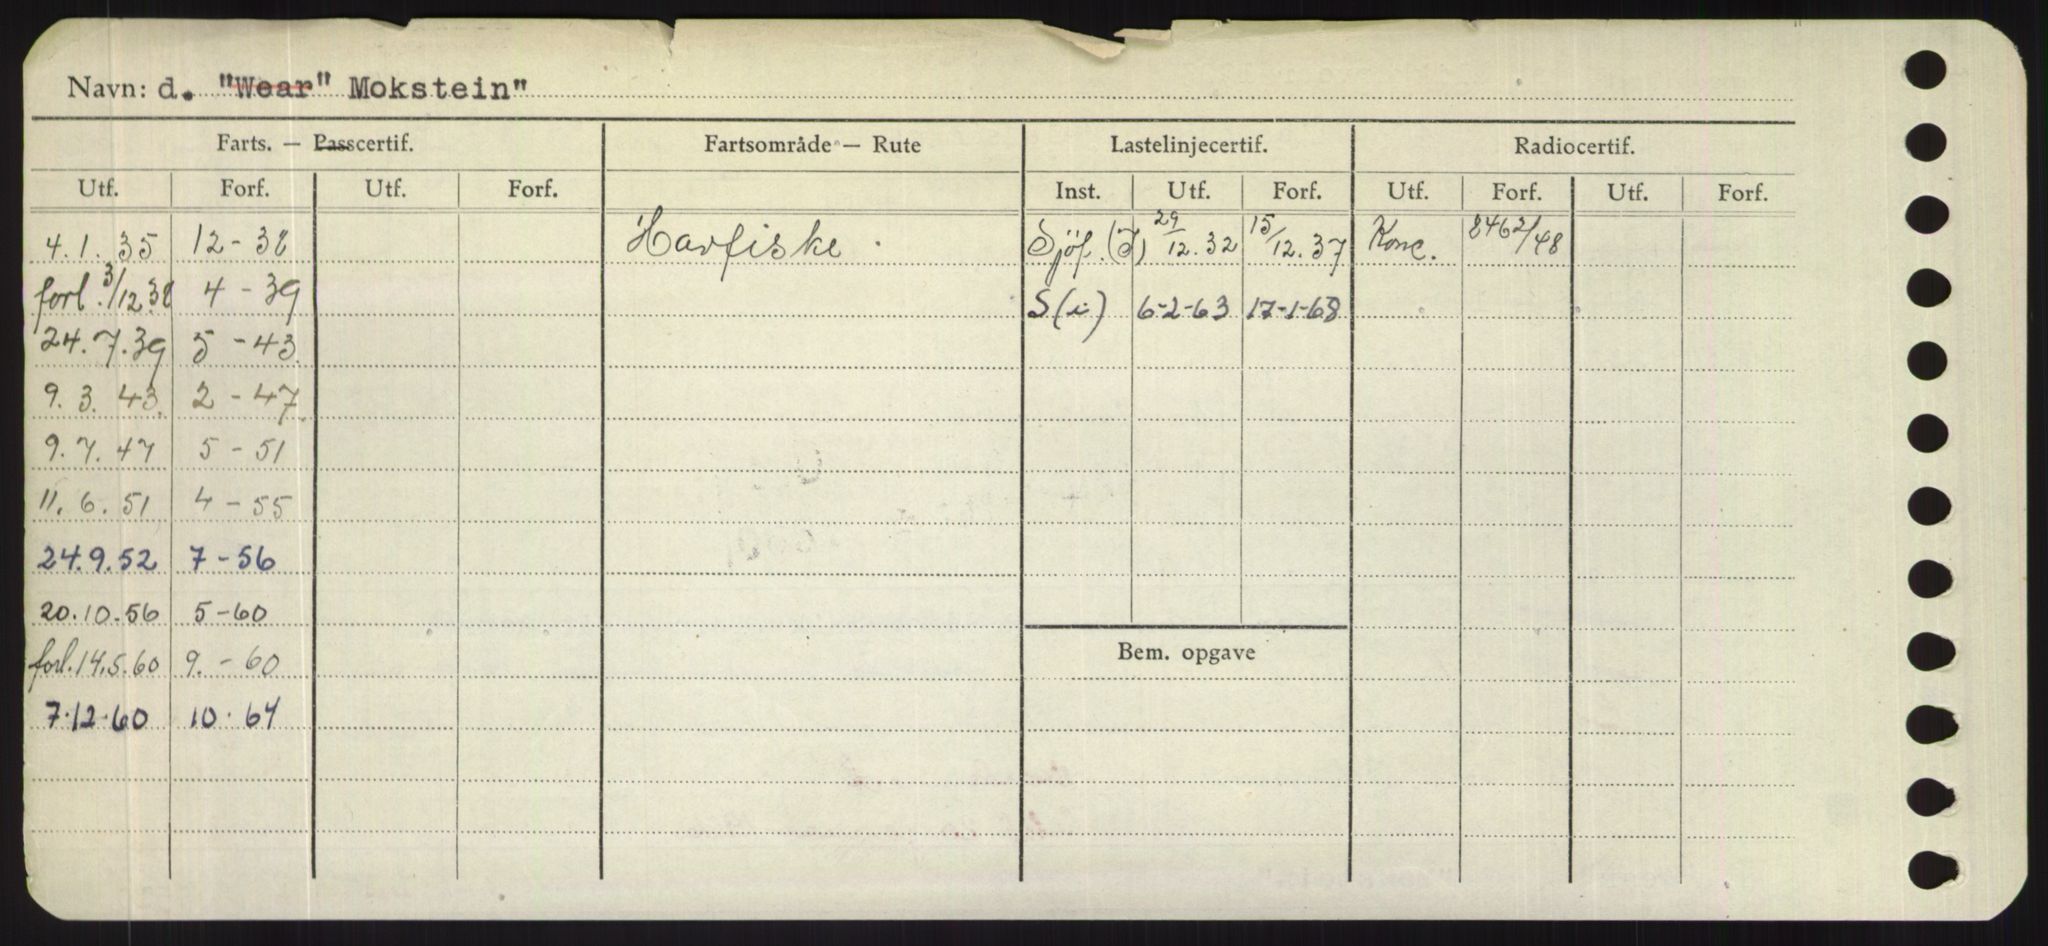 Navn: d. "Wear" Mokstein"
Farts. — Passcertif. Fartsområde — Rute Lastelinjecertif. Radiocertif.
Utf. Forf. Utf. Forf. Inst. Utf. Forf. Utf. Forf. Utf. Forf.
4.1.35 12-38 Havfiske. Sjöf. (J) 29/12.32 15/12.37 Konc. 8462/48
forl. 3/12 38 4-39 S(i) 6-2-63 17-1-68
24.7.39 5-43
9.3.43 2-47
9.7.47 5-51
11.6.51 4-55
24.9.52 7-56
20.10.56 5-60
forl. 14.5.60 9.-60
7.12.60 10.64
Bem. opgave